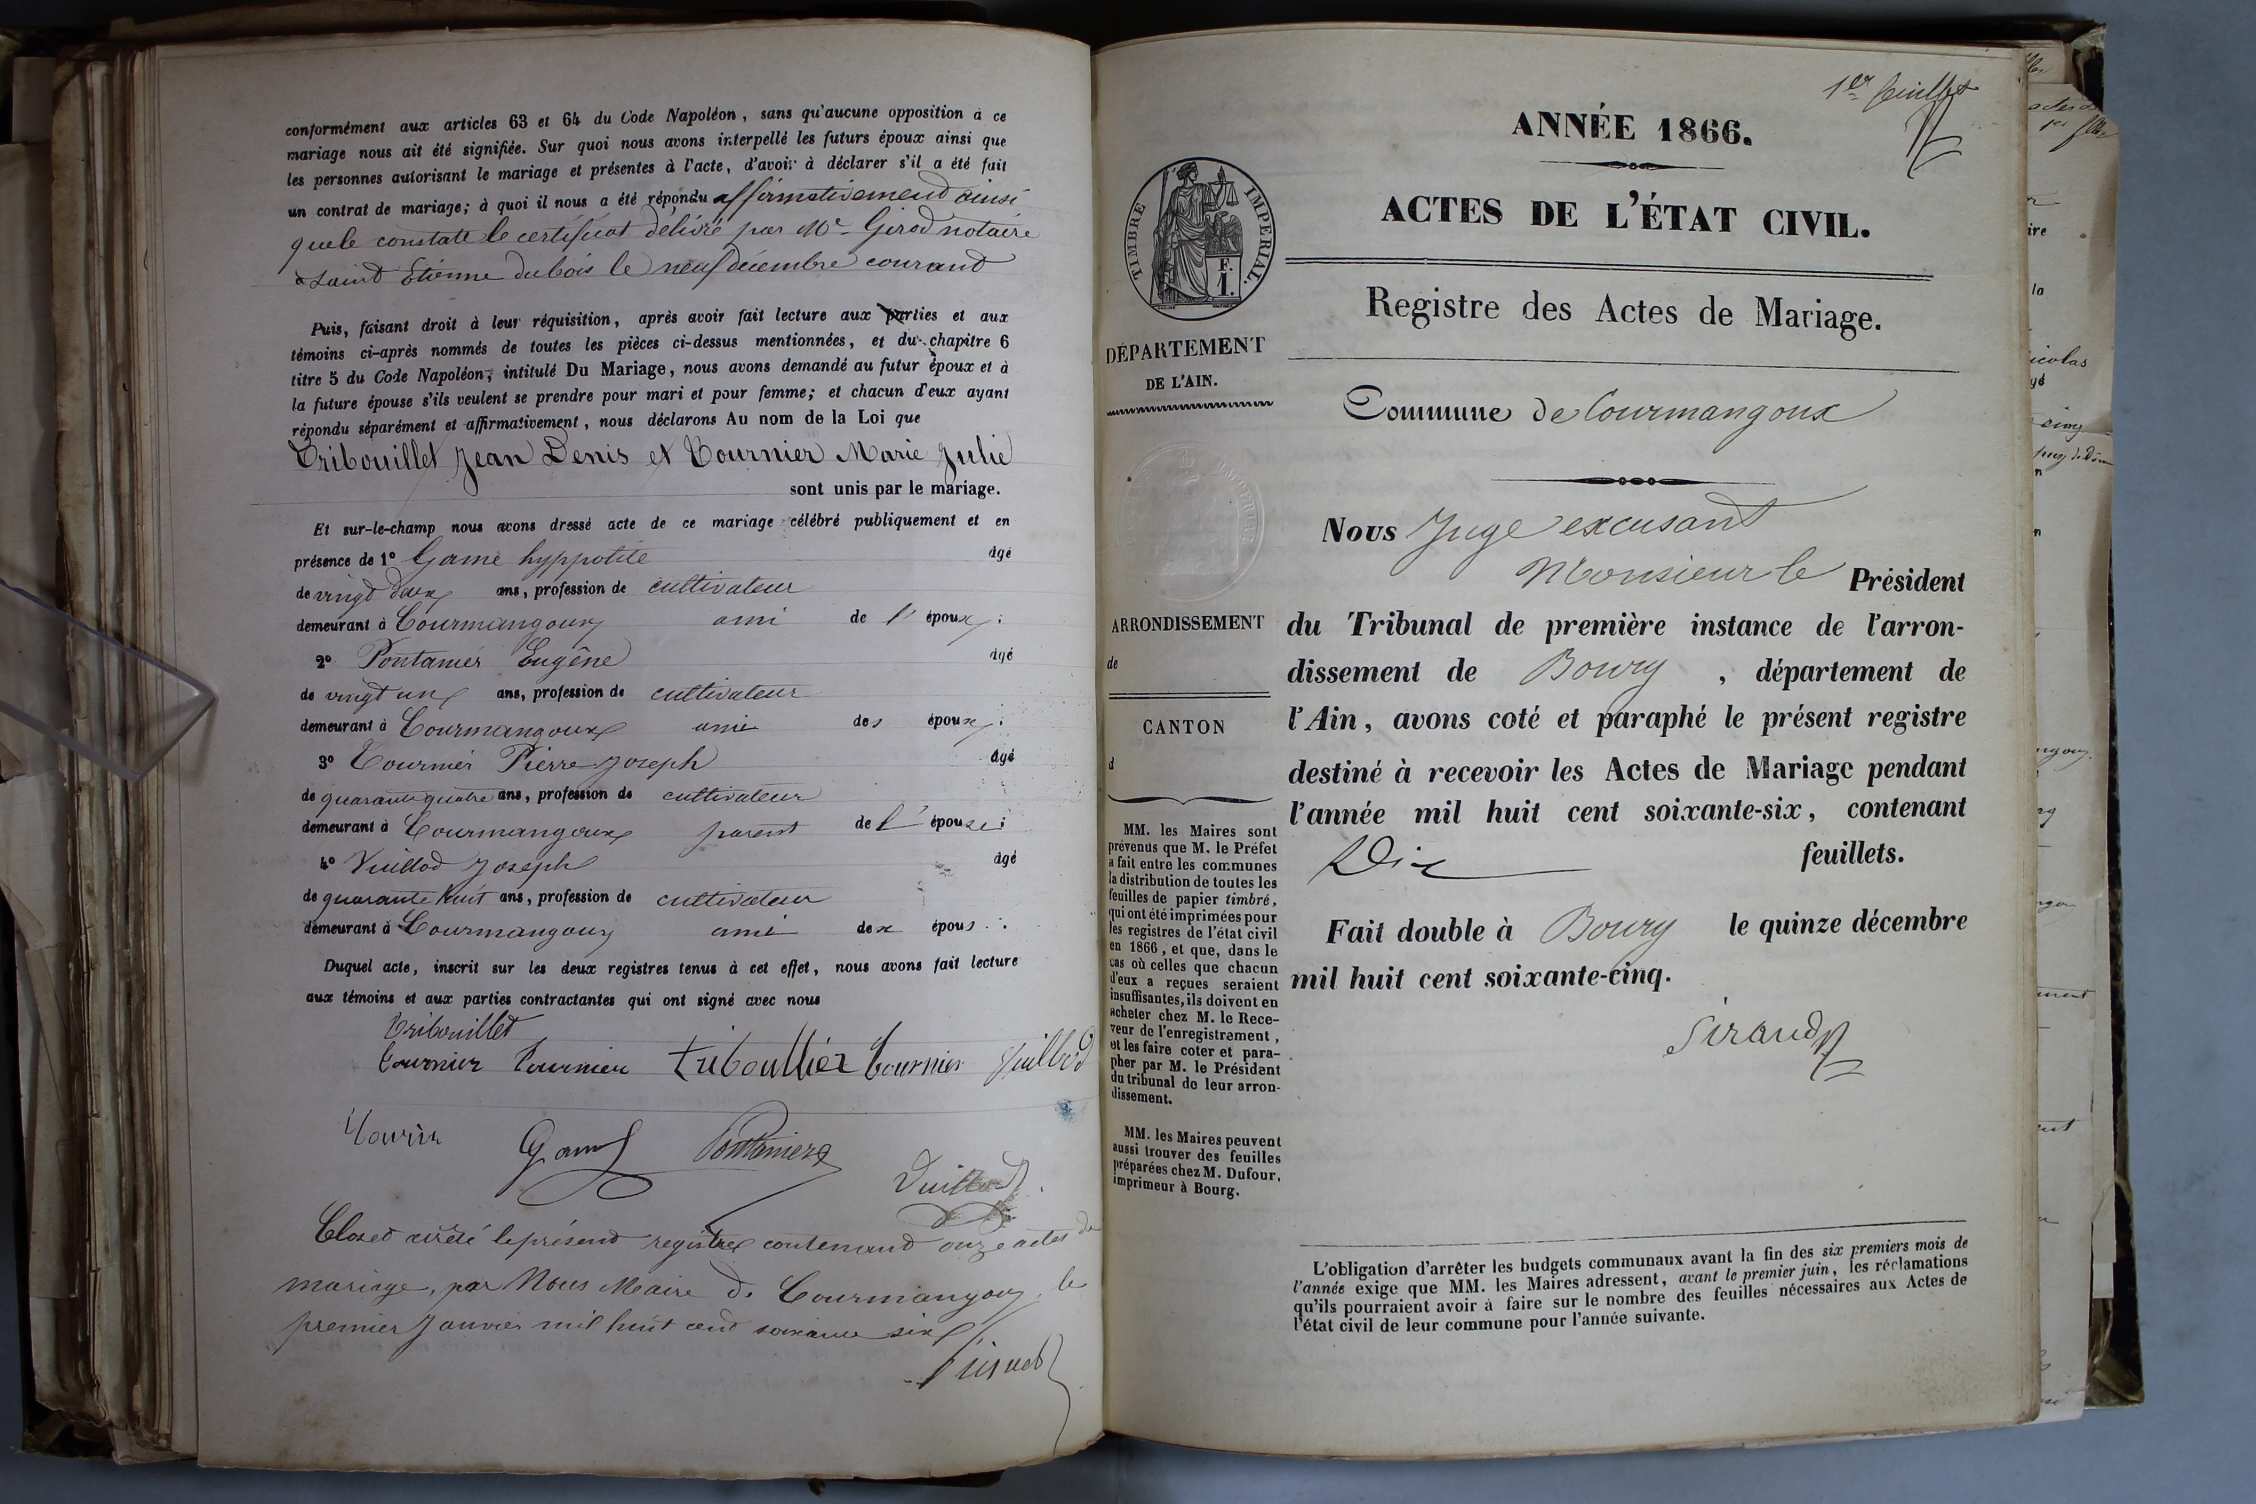 conformément aux articles 63 et 64 du Code Napoléon, sans qu'aucune opposition à ce
mariage nous ait été signifiée. Sur quoi nous avons interpellé les futurs époux ainsi que
les personnes autorisant le mariage et présentes à l'acte, d'avoir à déclarer s'il a été fait
un contrat de mariage; à quoi il nous a été répondu affirmativement ainsi
que le constate le certificat délivré par Me Girod notaire
à Saint Etienne du bois le neuf décembre courant
Puis, faisant droit à leur réquisition, après avoir fait lecture aux parties et aux
témoins ci-après nommés de toutes les pièces ci-dessus mentionnées, et du chapitre 6
titre 5 du Code Napoléon, intitulé Du Mariage, nous avons demandé au futur époux et à
la future épouse s'ils veulent se prendre pour mari et pour femme; et chacun d'eux ayant
répondu séparément et affirmativement, nous déclarons Au nom de la Loi que
Tribouillet Jean Denis et Tournier Marie Julie
sont unis par le mariage.
Et sur-le-champ nous avons dressé acte de ce mariage célébré publiquement et en
présence de 1º Game hyppolite âgé
de vingt deux ans, profession de cultivateur
demeurant à Courmangoux ami de l' époux;
2º Pontanier Eugêne âgé
de vingt un ans, profession de cultivateur
demeurant à Courmangoux ami des époux;
3º Tournier Pierre Joseph âgé
de quarante quatre ans, profession de cultivateur
demeurant à Courmangoux parent de l' épouse;
4º Vuillod Joseph âgé
de quarante huit ans, profession de cultivateur
demeurant à Courmangoux ami des époux.
Duquel acte, inscrit sur les deux registres tenus à cet effet, nous avons fait lecture
aux témoins et aux parties contractantes qui ont signé avec nous
Tribouillet
Tournier Tournier triboullier Tournier Vuillod
Game Pontanier
Vuillod
Clos et arrêté le présent registre contenant onze actes de
mariage, par Nous Maire de Courmangoux, le
premier Janvier mil huit cent soixante six
1er feuillet
ANNÉE 1866.
ACTES DE L'ÉTAT CIVIL.
Registre des Actes de Mariage.
TIMBRE IMPERIAL.
F.
1.
DÉPARTEMENT
DE L'AIN.
Commune de Courmangoux
Nous Juge excusant
Monsieur le Président
du Tribunal de première instance de l'arron-
dissement de Bourg, département de
l'Ain, avons coté et paraphé le présent registre
destiné à recevoir les Actes de Mariage pendant
l'année mil huit cent soixante-six, contenant
Dix feuillets.
Fait double à Bourg le quinze décembre
mil huit cent soixante-cinq.
Siraud
ARRONDISSEMENT
de
CANTON
d
MM. les Maires sont
prévenus que M. le Préfet
a fait entre les communes
la distribution de toutes les
feuilles de papier timbré,
qui ont été imprimées pour
les registres de l'état civil
en 1866, et que, dans le
cas où celles que chacun
d'eux a reçues seraient
insuffisantes, ils doivent en
acheter chez M. le Rece-
veur de l'enregistrement,
et les faire coter et para-
pher par M. le Président
du tribunal de leur arron-
dissement.
MM. les Maires peuvent
aussi trouver des feuilles
préparées chez M. Dufour,
imprimeur à Bourg.
L'obligation d'arrêter les budgets communaux avant la fin des six premiers mois de
l'année exige que MM. les Maires adressent, avant le premier juin, les réclamations
qu'ils pourraient avoir à faire sur le nombre des feuilles nécessaires aux Actes de
l'état civil de leur commune pour l'année suivante.